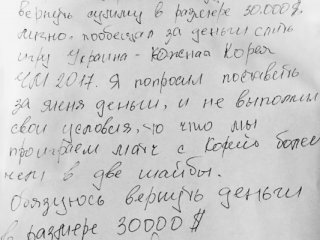 вернуть сумму в размере 30.000$,
лично. пообещал за деньги слить
игру Украина - Южная Корея
ЧМ 2017. Я попросил поставить
за меня деньги, и не выполнил
свои условия, то что мы
проиграем матч с Кореей более
чем в две шайбы.
Обязуюсь вернуть деньги
в размере 30000 $